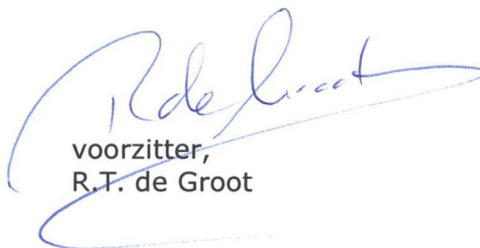 R de Groot
voorzitter,
R.T. de Groot